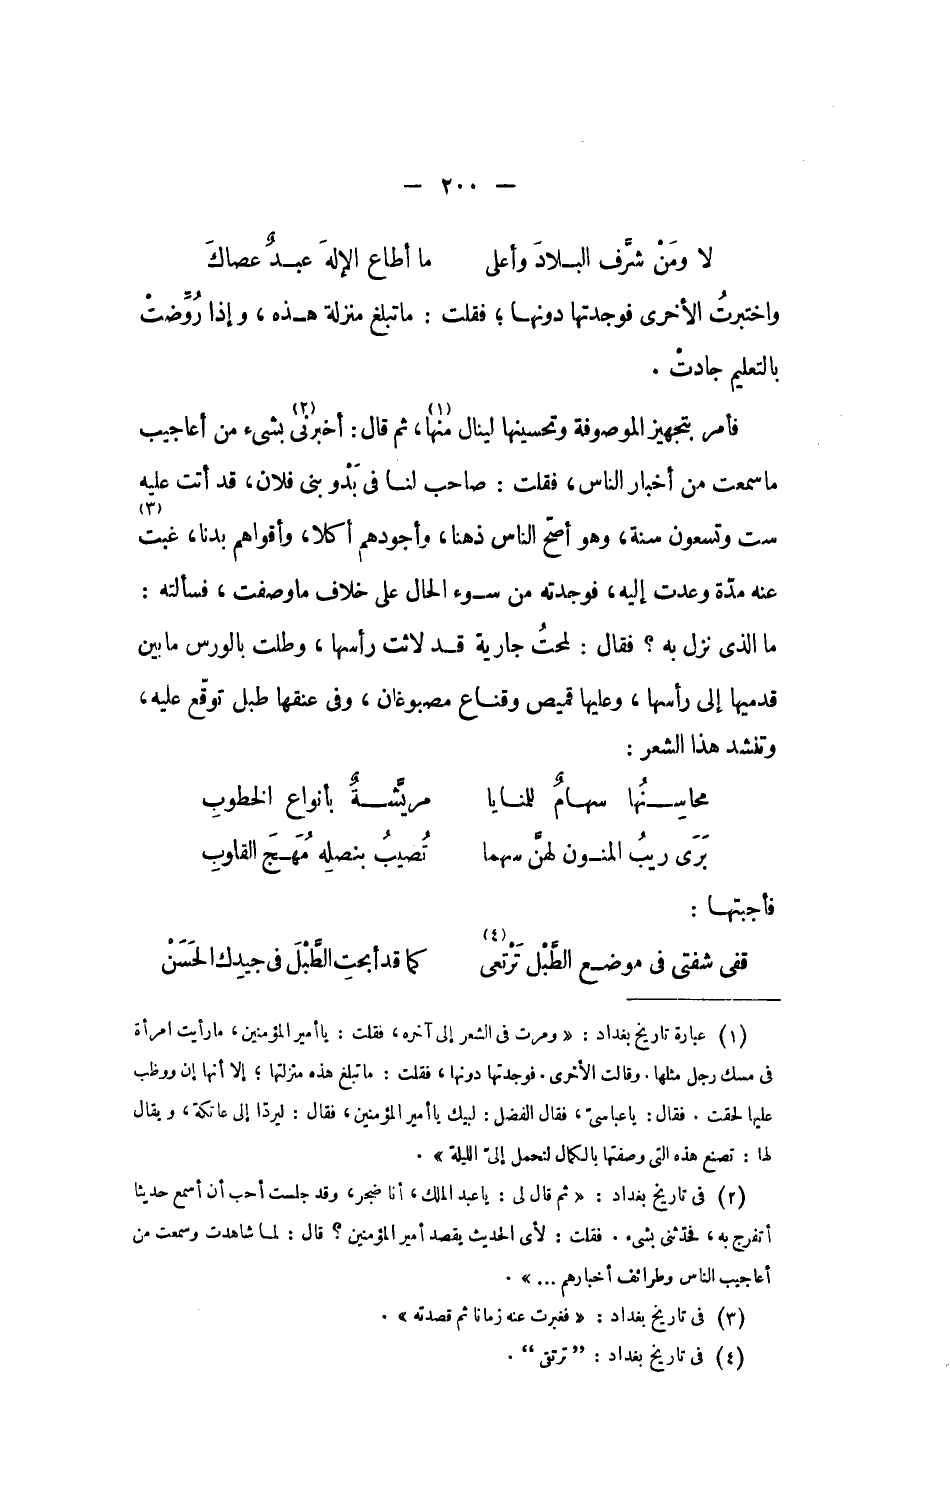 — ٢٠٠ —
لا ومَنْ شرَّف البلادَ وأعلى ما أطاع الإلهَ عبدٌ عصاكَ
واختبرتُ الأخرى فوجدتها دونها ؛ فقلت : ماتبلغ منزلة هذه ، وإذا رُوِّضتْ
بالتعليم جادتْ .
فأمر بتجهيز الموصوفة وتحسينها لينال منها(١)، ثم قال : أخبرنى(٢) بشىء من أعاجيب
ماسمعت من أخبار الناس ، فقلت : صاحب لنا فى بَدْو بنى فلان ، قد أتت عليه
ست وتسعون سنة ، وهو أصحّ الناس ذهنا ، وأجودهم أكلا ، وأقواهم بدنا ، غبت(٣)
عنه مدّة وعدت إليه ، فوجدته من سوء الحال على خلاف ماوصفت ، فسألته :
ما الذى نزل به ؟ فقال : لمحتُ جارية قد لاثت رأسها ، وطلت بالورس مابين
قدميها إلى رأسها ، وعليها قميص وقناع مصبوغان ، وفى عنقها طبل توقّع عليه ،
وتنشد هذا الشعر :
محاسِنُها سهامٌ للمنايا مريَّشةٌ بأنواع الخطوبِ
بَرَى ريبُ المنون لهنَّ سهما تُصيبُ بنصلِه مُهَجَ القلوبِ
فأجبتها :
قفى شفتى فى موضع الطَّبْل تَرْتعى(٤) كما قد أبحتِ الطَّبْلَ فى جيدِك الحَسَنْ
(١) عبارة تاريخ بغداد : « ومرت فى الشعر إلى آخره ، فقلت : ياأمير المؤمنين ، مارأيت امرأة
فى مسك رجل مثلها . وقالت الأخرى . فوجدتها دونها ، فقلت : ماتبلغ هذه منزلتها ؛ إلا أنها إن ووظب
عليها لحقت . فقال : ياعباسىّ ، فقال الفضل : لبيك ياأمير المؤمنين ، فقال : ليردّا إلى عاتكة ، ويقال
لها : تصنع هذه التى وصفتها بالكمال لتحمل إلىّ الليلة » .
(٢) فى تاريخ بغداد : « ثم قال لى : ياعبد الملك ، أنا ضجر ، وقد جلست أحب أن أسمع حديثا
أتفرج به ، فحدّثنى بشىء . فقلت : لأى الحديث يقصد أمير المؤمنين ؟ قال : لما شاهدت وسمعت من
أعاجيب الناس وطرائف أخبارهم ... » .
(٣) فى تاريخ بغداد : « فغبرت عنه زمانا ثم قصدته » .
(٤) فى تاريخ بغداد : ” ترتق “ .